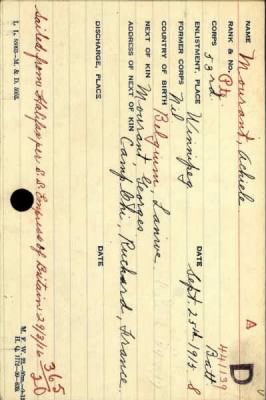 A
D
NAME Mourant, Achiele 441139
RANK & No. Pte
CORPS 53rd Batt
ENLISTMENT, PLACE Winnipeg DATE Sept 25th 1915
FORMER CORPS Nil
COUNTRY OF BIRTH Belgium,
NEXT OF KIN Mourant, Georges
ADDRESS OF NEXT OF KIN Camp Chi, Ruchard, France.
DISCHARGE, PLACE DATE
Sailed from Halifax per S.S. Empress of Britain 29/3/16
365
20
L. L. 30983—M. & D. 3688.
M. F. W.
H. Q.